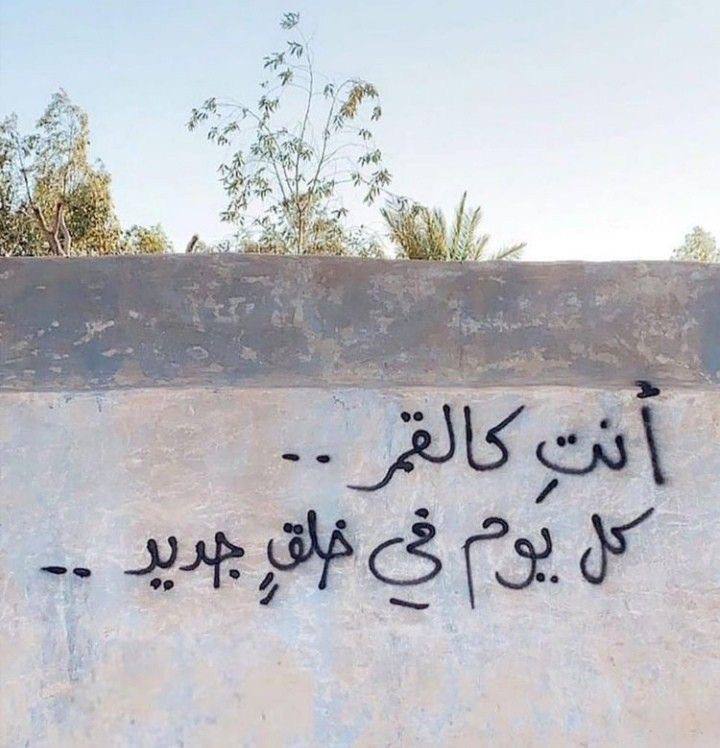 أنتِ كالقمر ..
كل يوم في خلقٍ جديد ..